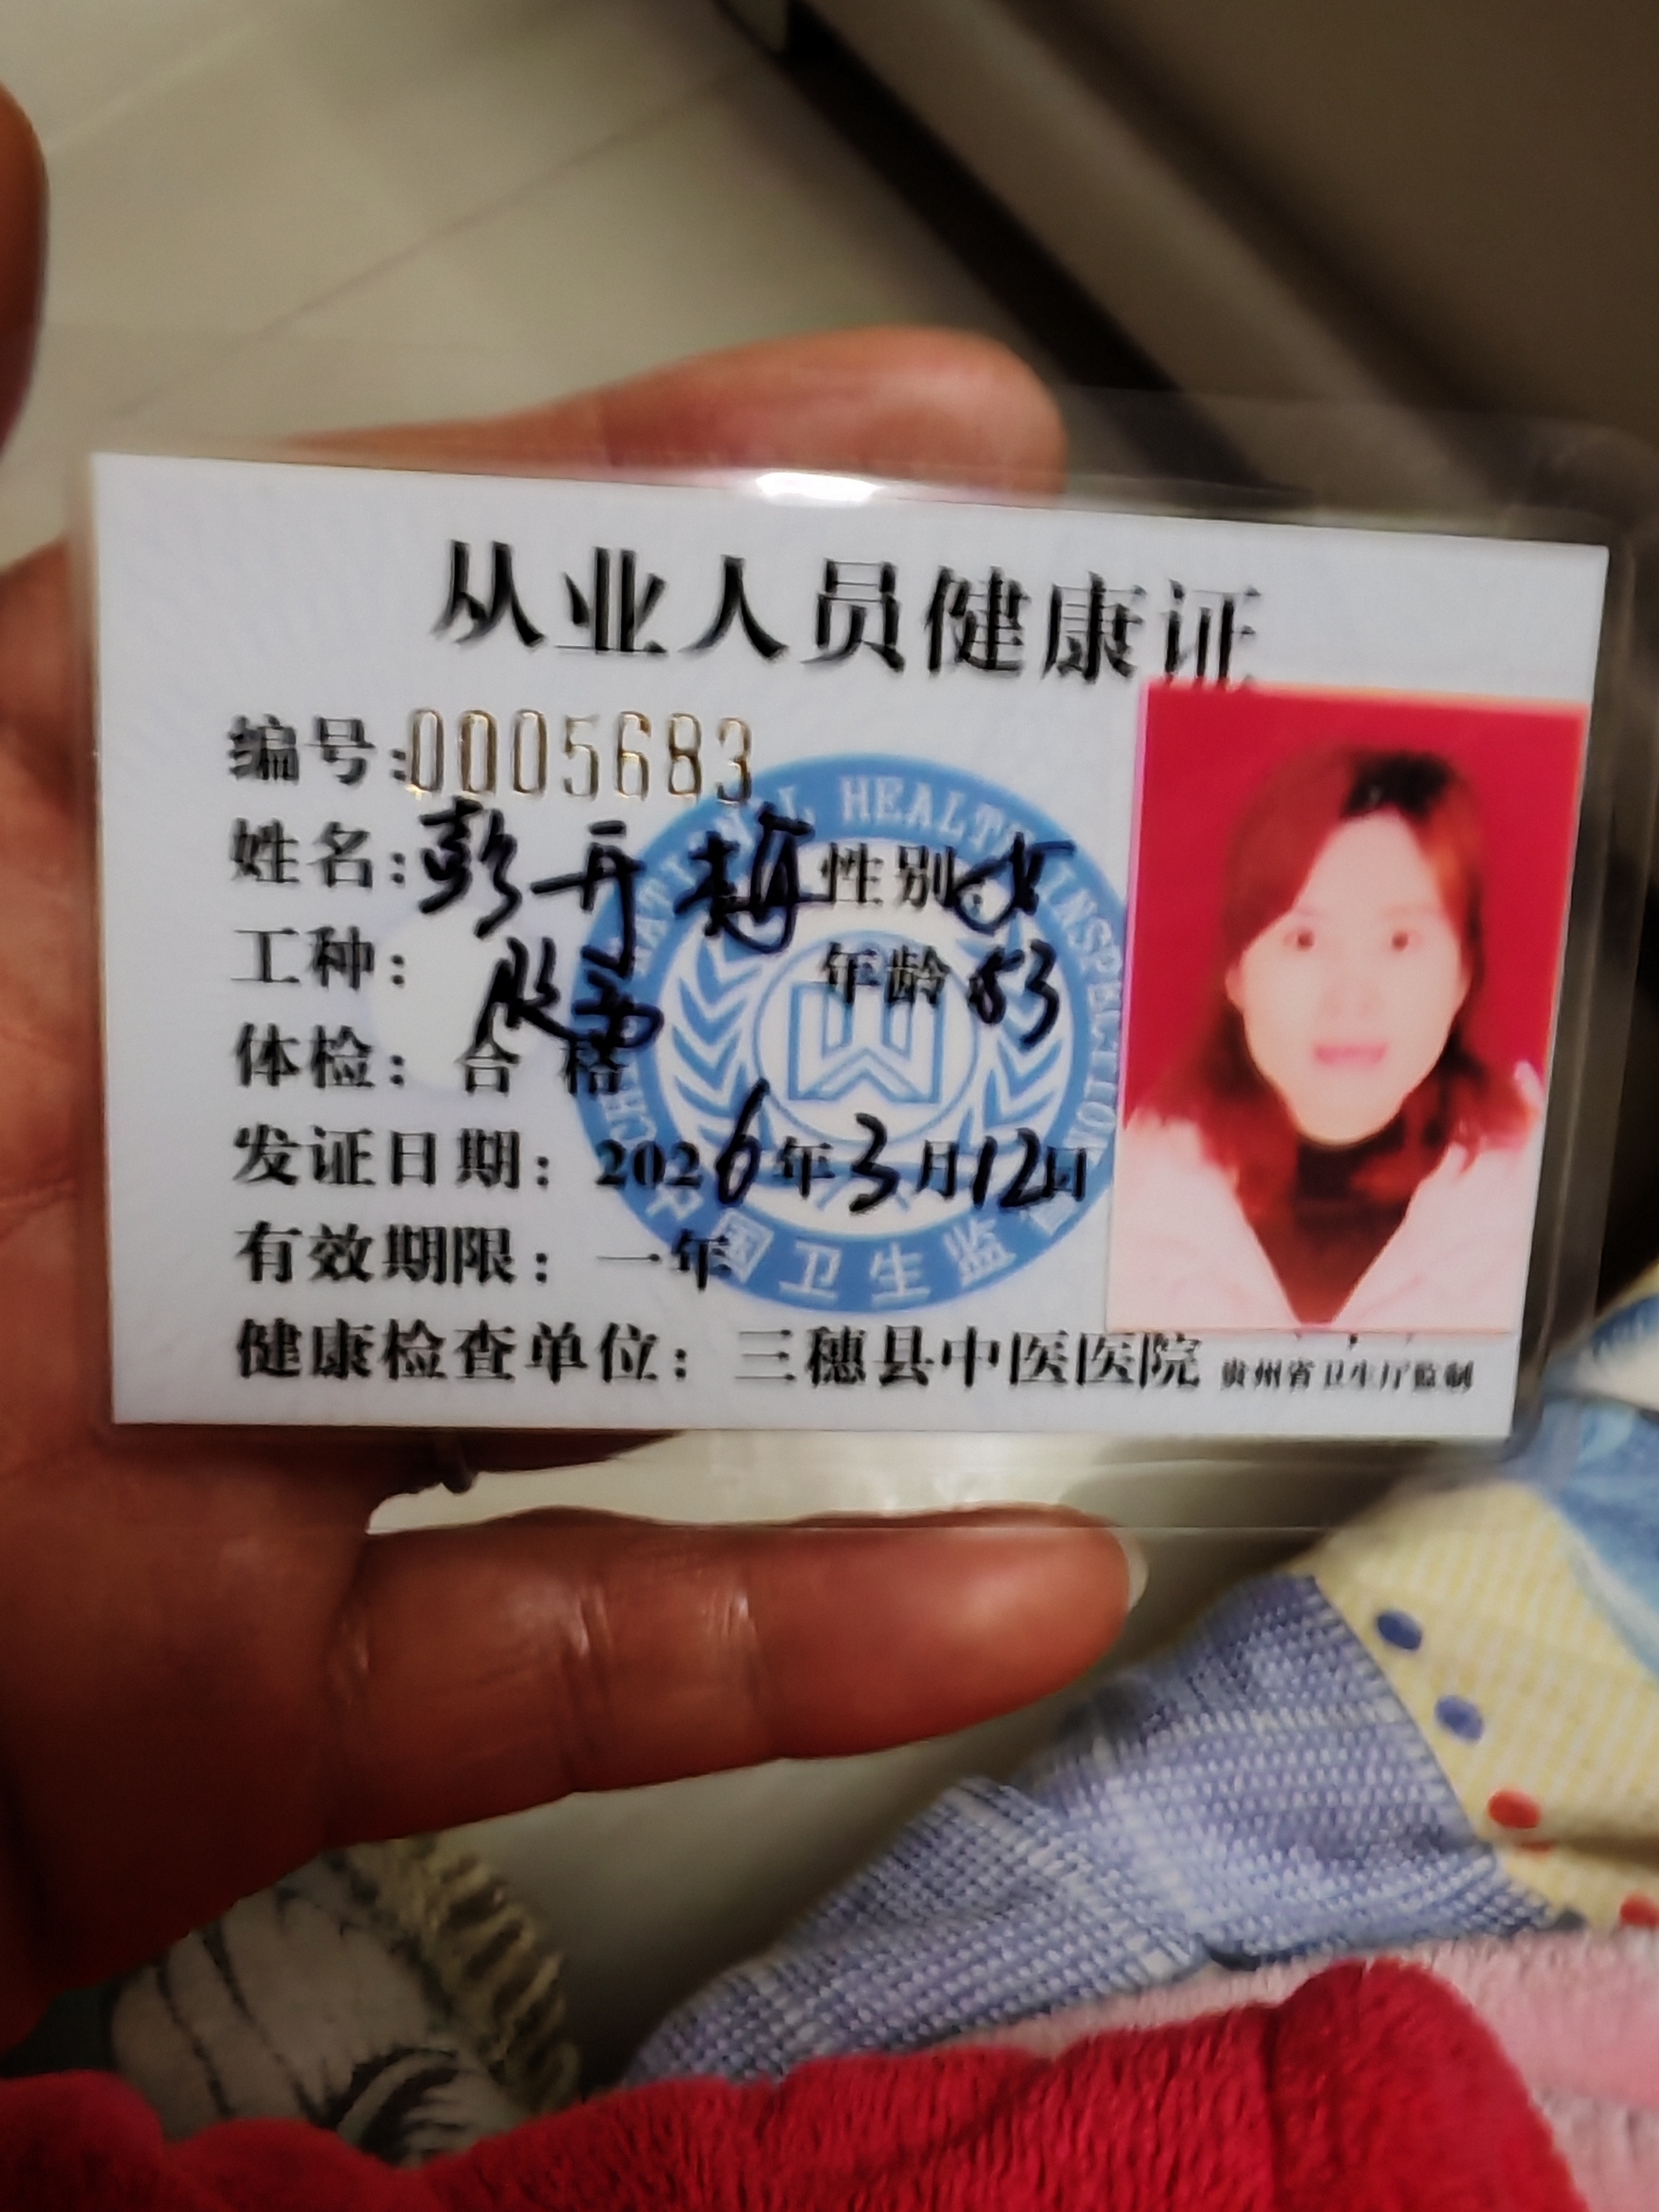 从业人员健康证
编号:0005683
姓名:彭开梅 性别:女
工种: 服务 年龄 53
体检: 合格
发证日期: 2026年3月12日
有效期限: 一年
健康检查单位: 三穗县中医医院 贵州省卫生厅监制
NATIONAL HEALTH INSPECTION
中国卫生监督